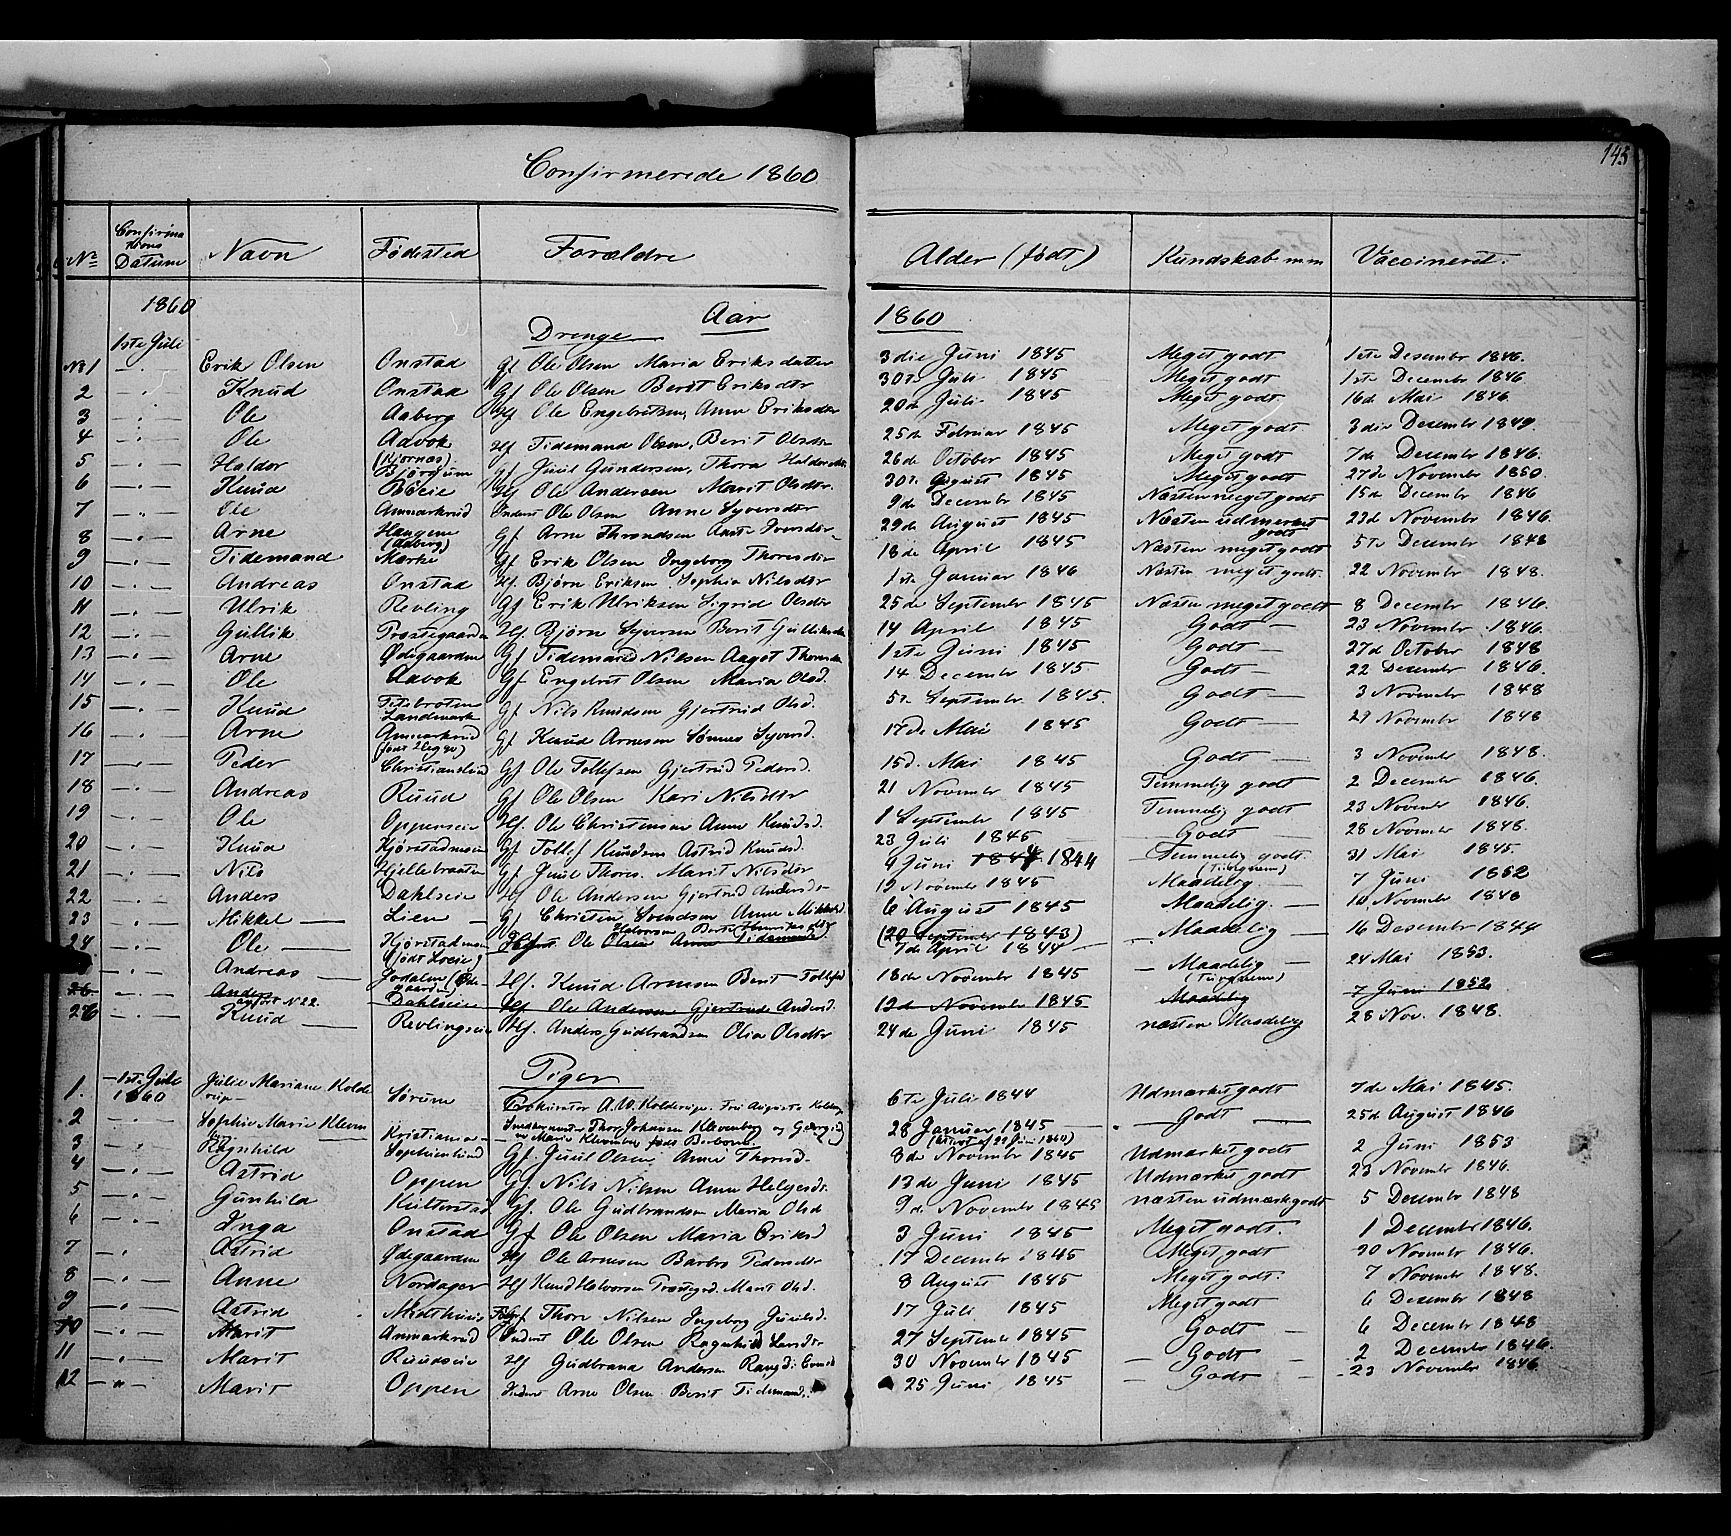 145
Confirmerede 1860
No Confirmations Datum Navn Fødested Forældre Alder (født) Kundskab m.m Vaccineret.
1860 Aar 1860
1ste Juli Drenge
No 1 Erik Olsen Onstad Gf Ole Olsen Maria Eriksdatter 3die Juni 1845 Meget godt 1ste Desember 1846.
2 Knud Onstad Gf Ole Olsen Berit Eriksdtr 30te Juli 1845 Meget godt 1ste December 1846
3 Ole Aaberg Hf Ole Engebretsen, Anne Eriksdtr 20de Juli 1845 Meget godt 16de Mai 1846
4 Ole Aavok Hf Tidemand Olsen, Berit Olsdtr 25de Februar 1845 Meget godt 3die Desember 1849.
5 Haldor (Kjornæs) Bjørgum Gf Juul Gundersen, Thora Haldorsdtr 26de October 1845 Meget godt 7de Desember 1846.
6 Knud Bøeie Hf Ole Andersen Marit Olsdtr. 30te August 1845 Meget godt 27de November 1850.
7 Ole Anmarkrud Inderst Ole Olsen Anne Syversdtr 9de Decembr 1845 Næsten meget godt 15de December 1846
8 Arne Haugene (Aaberg) Gf Arne Throndsen Iversdtr 29de August 1845 Næsten udmerket godt 23de November 1846.
9 Tidemand Mærke Gf Erik Olsen Ingeborg Thoresdtr 18de April 1845 Næsten meget godt 5te Desember 1848
10 Andreas Onstad Hf. Bjørn Eriksen Sophia Nilsdtr 1ste Januar 1846 Næsten meget godt. 22 November 1848.
11 Ulrik Revling Gf Erik Ulriksen Sigrid Olsdtr 25de September 1845 Næsten meget godt 8 December 1846.
12 Gullik Præstegaarden Hf. Bjørn Syversen Berit Gulliksdtr 14 April 1845 Godt 23 November 1846.
13 Arne Ødegaarden Gf Tidemand Nilsen Aagot Thoresdtr 1ste Juni 1845 Godt 27de October 1848
14 Ole Aavok Gf Engebret Olsen Maria Olsd. 14 December 1845 Godt 22 Desember 1846.
15 Knud Landemark Gf Nils Knudsen Gjertrud Olsd. 5te September 1845. Godt 3 November 1848
16 Arne Anmarkrud Gf Knud Arnesen Synnev Syversd. 17de Mai 1845 Godt 29 November 1848
17 Peder Christianslund Gf Ole Tollefsen Gjertrud Pedersd. 15d. Mai 1845 Godt 3 November 1848.
18 Andreas Ruud Gf Ole Olsen Kari Nilsdtr 21 November 1845 Temmelig godt 2 December 1846.
19 Ole Oppenseie Hf. Ole Christensen Anne Knudsd. 1 September 1845 Temmelig godt 23 November 1846.
20 Knud Kjørstadmoen Gf Tollef Knudsen Astrid Knudsd. 23 Juli 1845 Godt 28 November 1848.
21 Nils Hjellebraaten Gf Juul Thores. Marit Nilsdtr 9 Juni 1844 1844 Temmelig godt. 31 Mai 1845.
22 Anders Dahlseie Hf Ole Andersen Gjertrud Andersdtr 12 November 1845 Maadelig 7 Juni 1852
23 Mikkel Lien Gf Christen Svendsen Anne Mikkelsd. 6 August 1845 Maadelig. 10 November 1848
24 Ole Kjørstadmoen (født Loeie) Ole Olsen Anne Tidemandsd (20 September 1843) 7de April 1844 Maadelig 16 Desember 1844
Andreas Hf. Knud Arnesen Berit Tollefsd 18de November 1845 Maadelig 24 Mai 1853.
26 Anders anført N 22. Dahlseie Hf Ole Andersen Gjertrud Andersd. 12de November 1845 Maadelig 7 Juni 1852
26 Knud Revlingseie Hf. Anders Gudbrandsen Olia Olsdtr 24de Juni 1845 næsten Maadelig 28 Nov. 1848.
Piger
1. 1ste Juli 1860 Julie Mariane Kolderup Sørum Prokurator A.W. Kolderup. Fru Augusta Kolderup 6te Juli 1844 Udmærket godt 7de Mai 1845.
2 Sophie Marie Kristiania Thor Johansen Klevenberg og 28 Januar 1845 Godt 25de August 1846
3 Ragnhild Sophienlund Gf. Juul Olsen Anne Thoresd. 8de November 1845 Udmærket godt 2 Juni 1853
4 Astrid Oppen Gf. Nils Nilsen Anne Helgesdt. 13de Juni 1845 Udmærket godt 23 November 1846.
5 Gunhild Kulterstad Gf. Ole Gudbrandsen Maria Olsd 9de November 1845 næsten udmærk godt 5 Desember 1848
6 Inga Onstad Gf Ole Olsen Maria Eriksd 3 Juni 1845 Meget godt. 1 December 1846.
7 Astrid Ødegaarden Hf Ole Arnesen Barbro Pedersdtr 17 December 1845 Meget godt 30 November 1846.
8 Anne Nordager Hf Knud Halvorsen Marit Olsd. 8 August 1845 Meget godt. 7 November 1848.
9 Astrid Midthuus Thore Nilsen Ingeborg Juulsd. 17 Juli 1845 Meget godt 6 Desember 1848
10 Marit Anmarkrud Inderst Ole Olsen Ragnhild Larsdtr 27 September 1845 Godt 6 December 1848
11 Marit Ruudseie Hf Gudbrand Andersen 30 November 1845 Godt 2 December 1846.
12 Marit Oppen Arne Olsen Berit Tidemandsd. 25 Juni 1845 Godt 23 November 1846